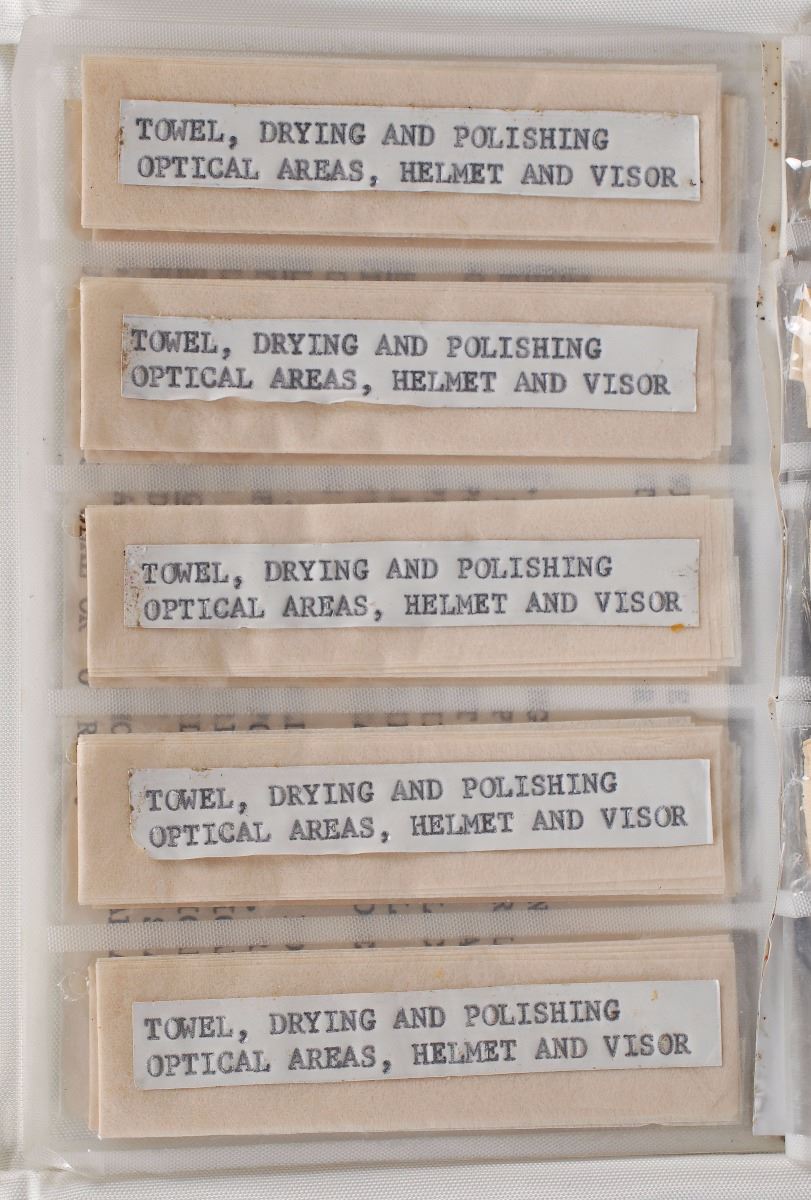 TOWEL, DRYING AND POLISHING
OPTICAL AREAS, HELMET AND VISOR
TOWEL, DRYING AND POLISHING
OPTICAL AREAS, HELMET AND VISOR
TOWEL, DRYING AND POLISHING
OPTICAL AREAS, HELMET AND VISOR
TOWEL, DRYING AND POLISHING
OPTICAL AREAS, HELMET AND VISOR
TOWEL, DRYING AND POLISHING
OPTICAL AREAS, HELMET AND VISOR